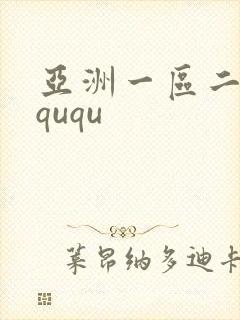 亞洲一區二
ququ
萊昂納多迪卡